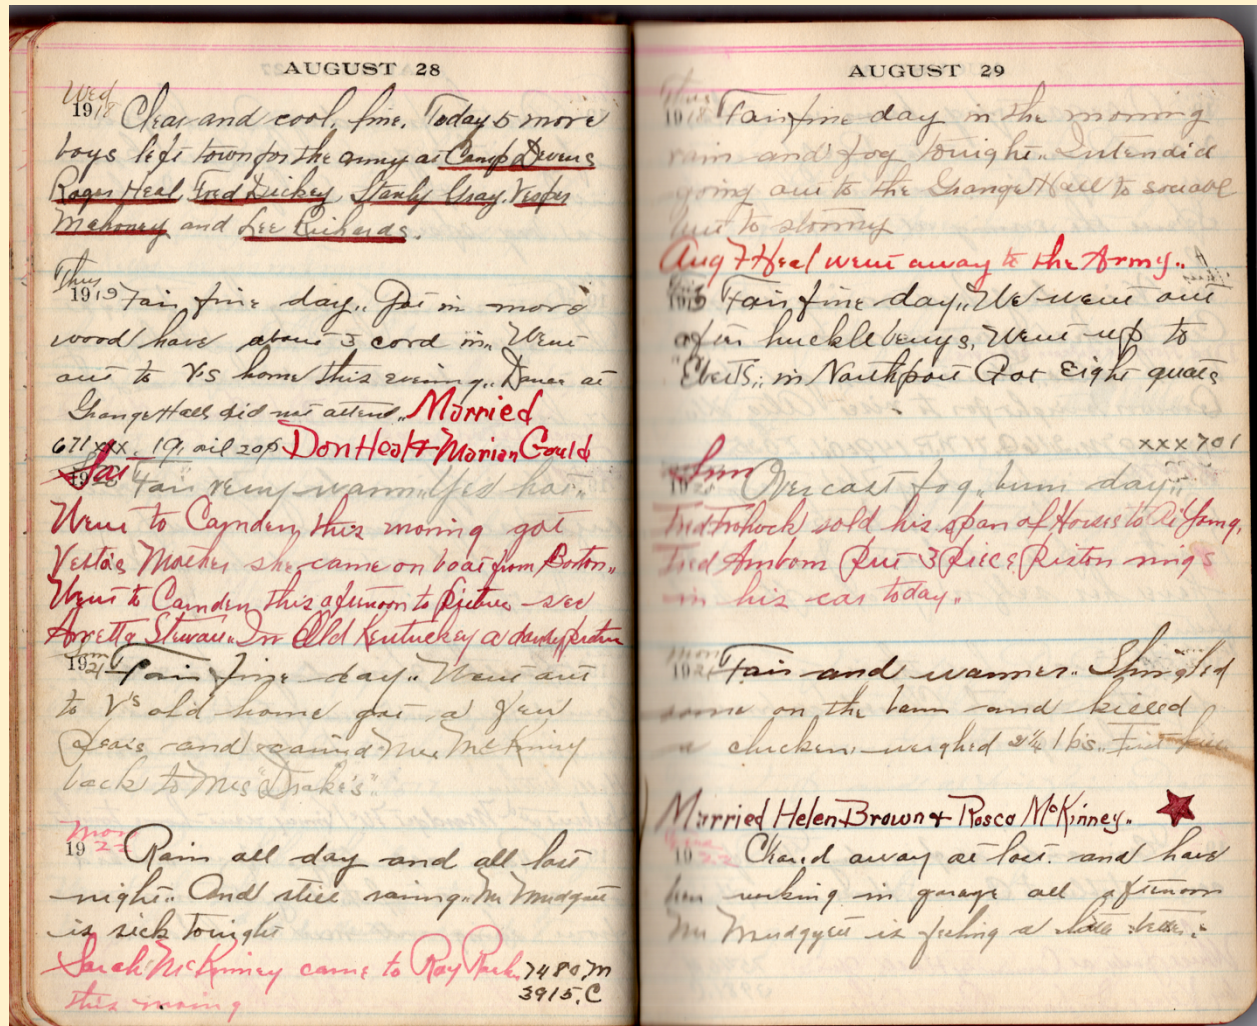 AUGUST 28
Wed
1918 Clear and cool, fine. Today 5 more
boys left town for the army at Camp Devens
Roger Heal, Fred Dickey, Stanly Gray, Vesper
Mahoney and Lee Richards.
Thur
1919 Fair fine day.. Got in more
wood have about 3 cord in.. Went
out to V's home this evening.. Dance at
Grange Hall did not attend.. Married
671xxx. 19. oil 20¢ Don Heal & Marian Gould
Sat
1920 Fair very warm.. Yes hot..
Went to Camden this moring got
Vesta's Mother she came on boat from Boston..
Went to Camden this afternoon to picture see
Anetta Stewart.. In Old Kentuckey a dandy picture
Sun
1921 Fair fine day.. Went out
to V's old home got a few
pears and carried Mrs McKinny
back to Mrs Drake's..
Mon
1922 Rain all day and all last
night.. And still raining.. Mr Mudgett
is sick tonight
Sarah McKinney came to Ray 7480 M
this moring 3915. C
AUGUST 29
Thur
1918 Fair fine day in the morning
rain and fog tonight.. Intendid
going out to the Grange Hall to
but to stormy
Aug 7 Heal went away to the Army..
1919 Fair fine day.. We went out
after huckleberrys, Went up to
Eberts.. in Northport Got Eight quats
xxx701
Sun
1920 Overcast fog.. bum day..
Fred Frohock sold his span of Horses to Al Young,
Fred Ambom put 3 piece Piston rings
in his car today..
Mon
1921 Fair and warmer.. Shingled
some on the barn and killed
a chicken weighed 2¼ lbs.. First
Married Helen Brown & Rosco McKinney..
1922 Cleard away at last. and have
ben working in garage all afternoon
Mr Mudgyett is feeling a little better..